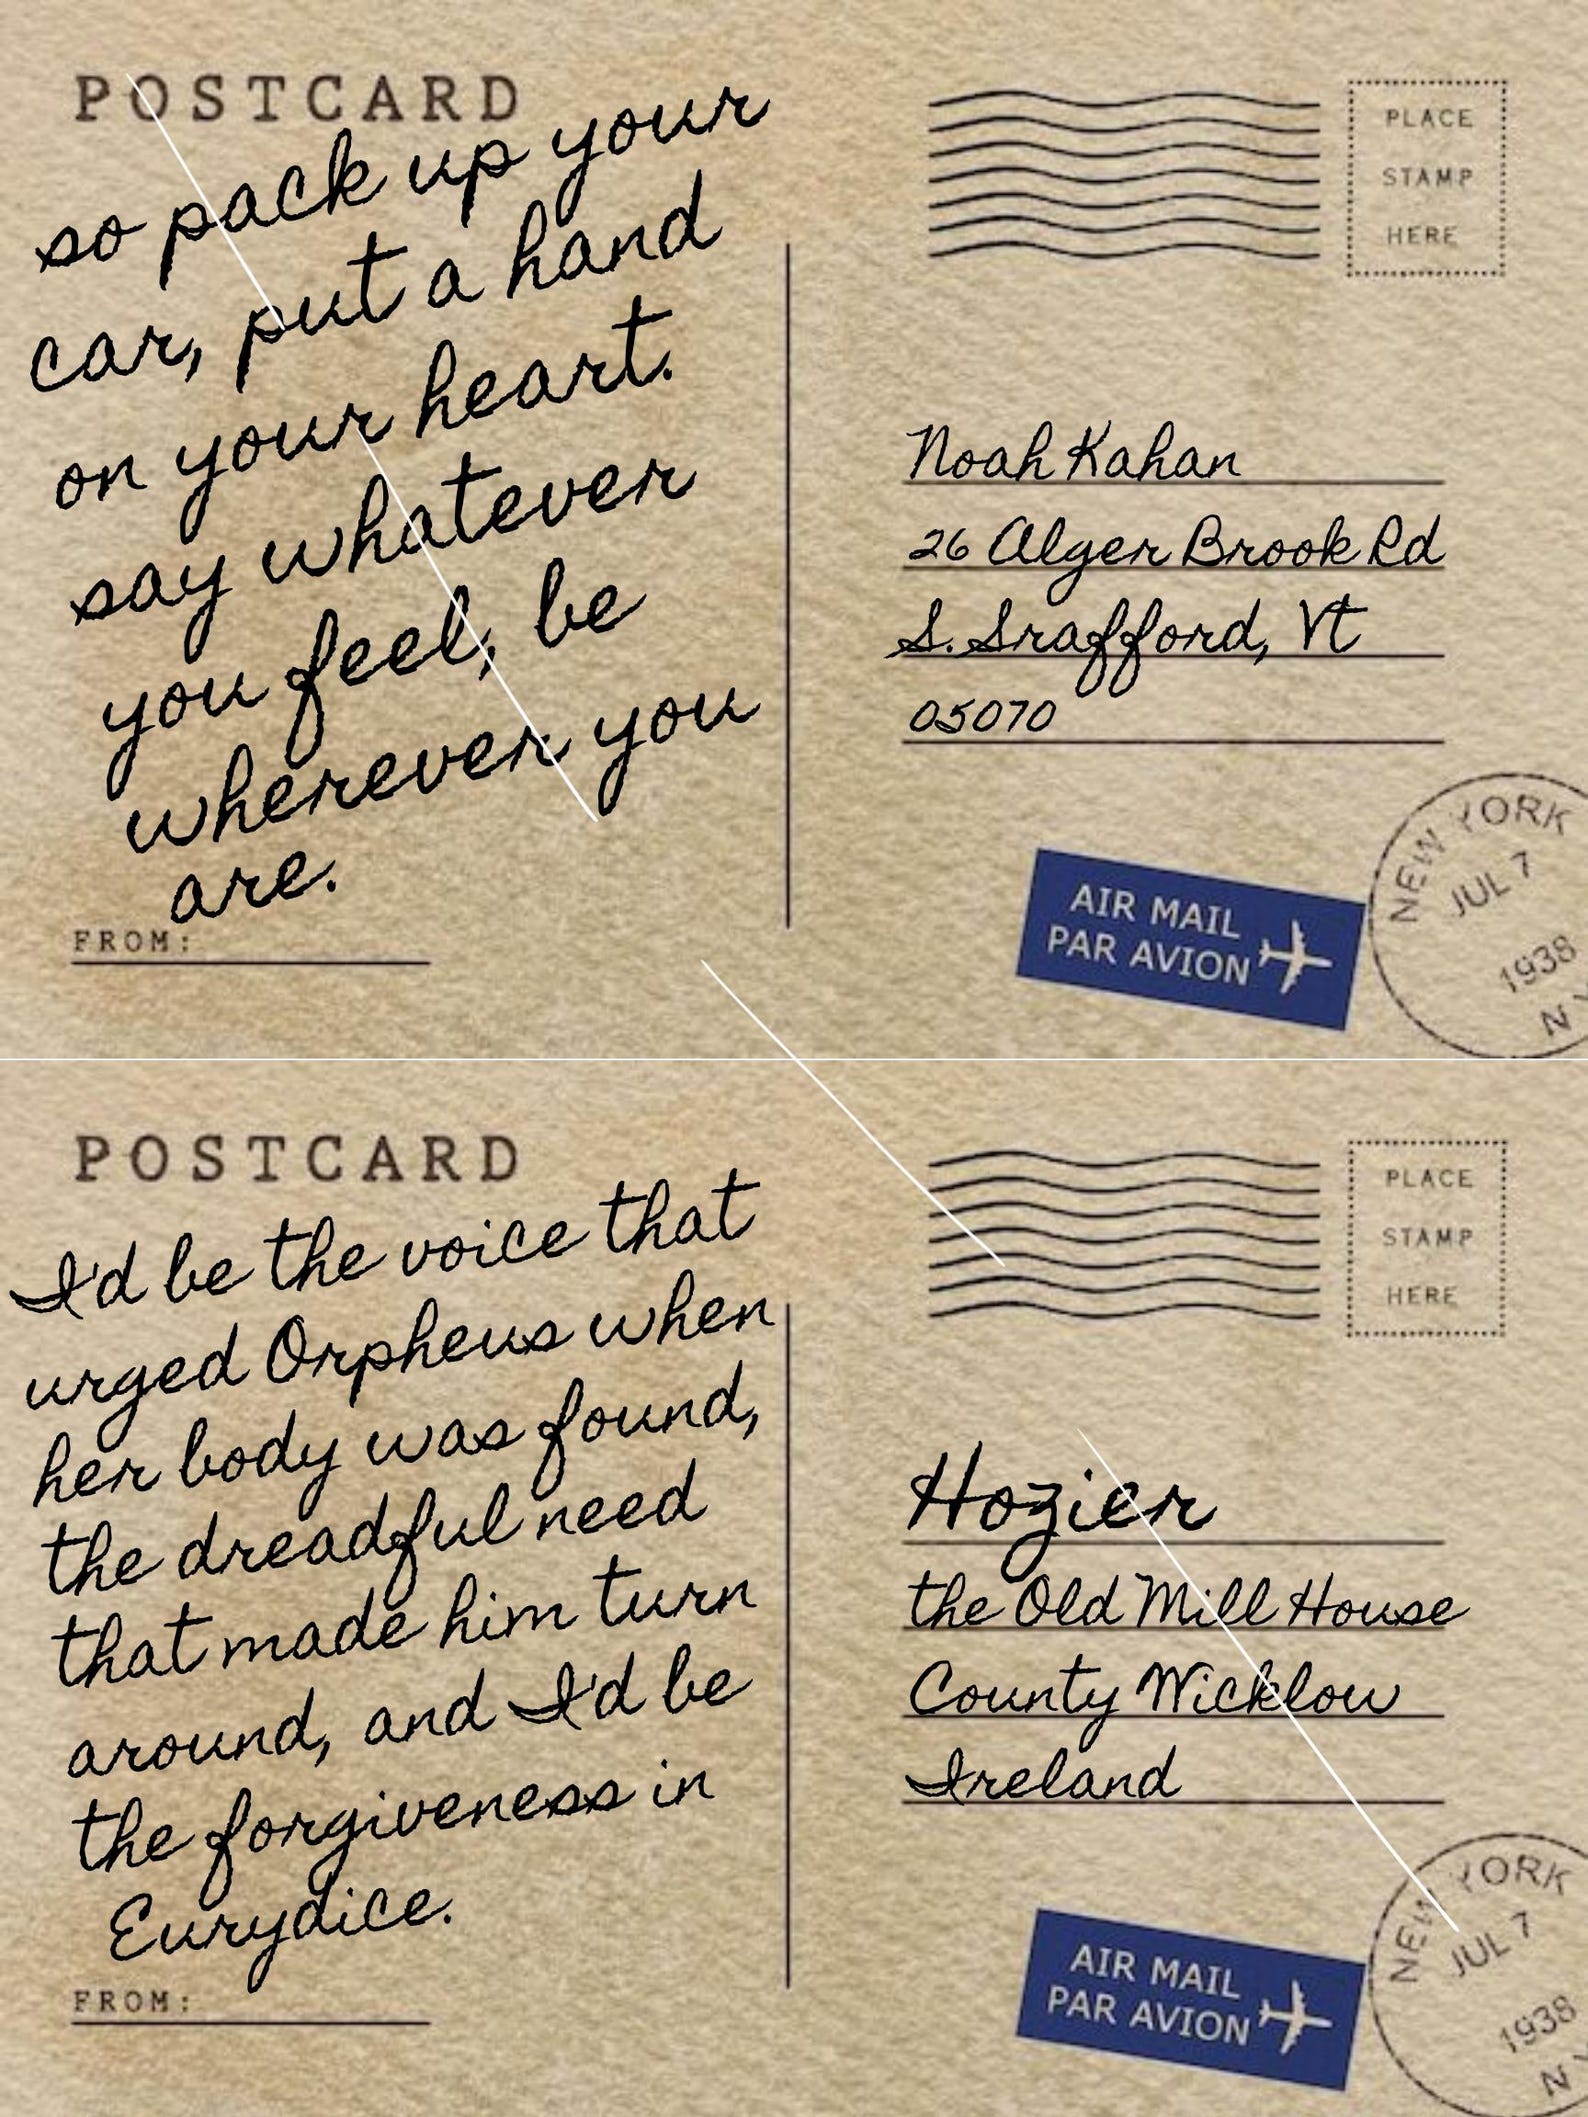 POSTCARD
so pack up your
car, put a hand
on your heart.
say whatever
you feel, be
wherever you
are.
FROM:
PLACE
STAMP
HERE
Noah Kahan
26 Alger Brook Rd
S. Srafford, Vt
05070
AIR MAIL
PAR AVION
NEW YORK
JUL 7
1938
N.Y
POSTCARD
I'd be the voice that
urged Orpheus when
her body was found,
the dreadful need
that made him turn
around, and I'd be
the forgiveness in
Eurydice.
FROM:
PLACE
STAMP
HERE
Hozier
the Old Mill House
County Wicklow
Ireland
AIR MAIL
PAR AVION
NEW YORK
JUL 7
1938
N.Y